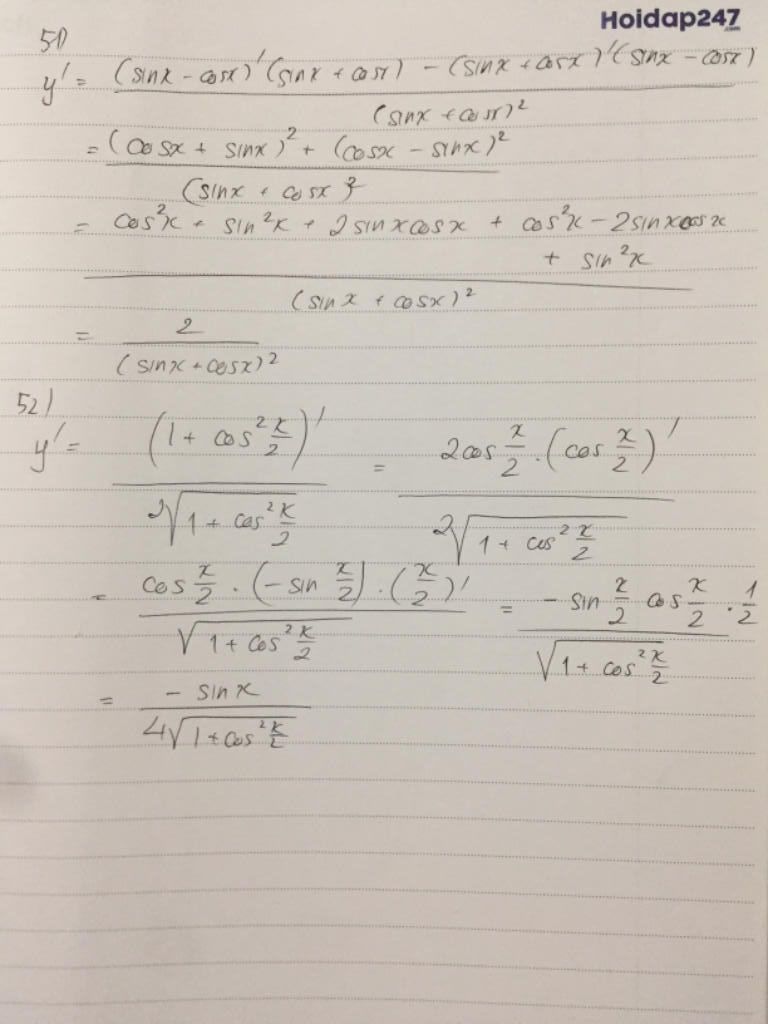 Hoidap247
.com
51)
y' = ((sinx - cosx)'(sinx + cosx) - (sinx + cosx)'(sinx - cosx))/((sinx + cosx)²)
= ((cosx + sinx)² + (cosx - sinx)²)/((sinx + cosx²)
= (cos²x + sin²x + 2sinxcosx + cos²x - 2sinxcosx + sin²x)/((sinx + cosx)²)
= 2/((sinx + cosx)²)
52)
y' = (1 + cos² x/2)'/(2√(1 + cos² x/2)) = (2cos x/2 . (cos x/2)')/(2√(1 + cos² x/2))
= (cos x/2 . (-sin x/2) . (x/2)')/(√(1 + cos² x/2)) = (-sin x/2 cos x/2 . 1/2)/(√(1 + cos² x/2))
= (-sinx)/(4√(1 + cos² x/2))